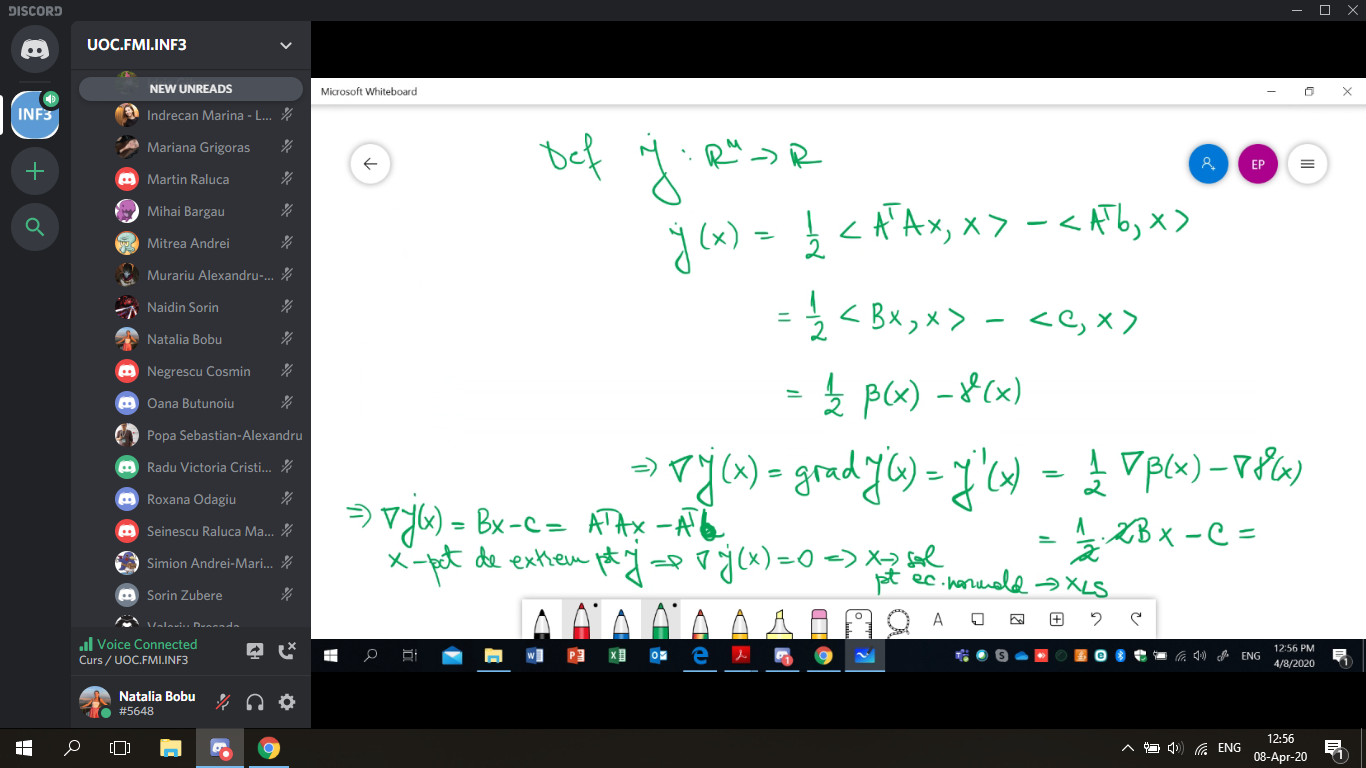 DISCORD
UOC.FMI.INF3
NEW UNREADS
INF3
Indrecan Marina - L...
Mariana Grigoras
Martin Raluca
Mihai Bargau
Mitrea Andrei
Murariu Alexandru-...
Naidin Sorin
Natalia Bobu
Negrescu Cosmin
Oana Butunoiu
Popa Sebastian-Alexandru
Radu Victoria Cristi...
Roxana Odagiu
Seinescu Raluca Ma...
Simion Andrei-Mari...
Sorin Zubere
Voice Connected
Curs / UOC.FMI.INF3
Natalia Bobu
#5648
Microsoft Whiteboard
EP
Def j : ℝⁿ → ℝ
j(x) = 1/2 < AᵀAx, x > − < Aᵀb, x >
= 1/2 < Bx, x > − < c, x >
= 1/2 β(x) − γ(x)
⇒ ∇j(x) = grad j(x) = j'(x) = 1/2 ∇β(x) − ∇γ(x)
= 1/2 · 2Bx − c =
⇒ ∇j(x) = Bx − c = AᵀAx − Aᵀb
x − pct de extrem pt j ⇒ ∇j(x) = 0 ⇒ x → sol
pt ec. normală → xLS
A
ENG
12:56 PM
4/8/2020
1
ENG
12:56
08-Apr-20
1